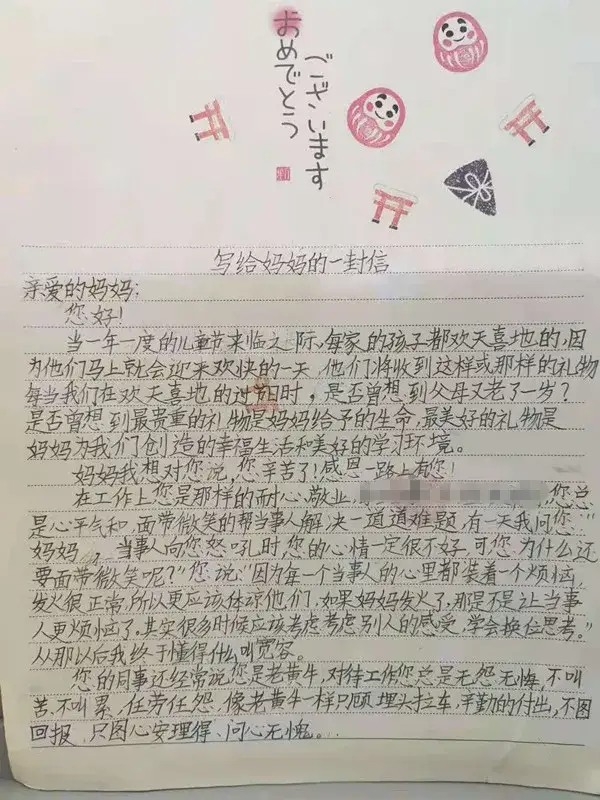 おめでとう
ございます
写给妈妈的一封信
亲爱的妈妈:
您好!
当一年一度的儿童节来临之际,每家的孩子都欢天喜地的,因
为他们马上就会迎来欢快的一天,他们将收到这样或那样的礼物
每当我们在欢天喜地的过节时,是否曾想到父母又老了一岁?
是否曾想到最贵重的礼物是妈妈给予的生命,最美好的礼物是
妈妈为我们创造的幸福生活和美好的学习环境。
妈妈我想对您说,您辛苦了!感恩一路上有您!
在工作上您是那样的耐心、敬业,您总
是心平气和,面带微笑的帮当事人解决一道道难题,有一天我问您:“
妈妈,当事人向您怒吼时,您的心情一定很不好,可您为什么还
要面带微笑呢?”您说:“因为每一个当事人的心里都装着一个烦恼,
发火很正常,所以更应该体谅他们,如果妈妈发火了,那是不是让当事
人更烦恼了。其实很多时候应该考虑考虑别人的感受,学会换位思考。”
从那以后我终于懂得什么叫宽容。
您的同事还经常说您是老黄牛,对待工作您总是无怨无悔,不叫
苦、不叫累,任劳任怨,像老黄牛一样只顾埋头拉车,辛勤的付出,不图
回报,只图心安理得、问心无愧。